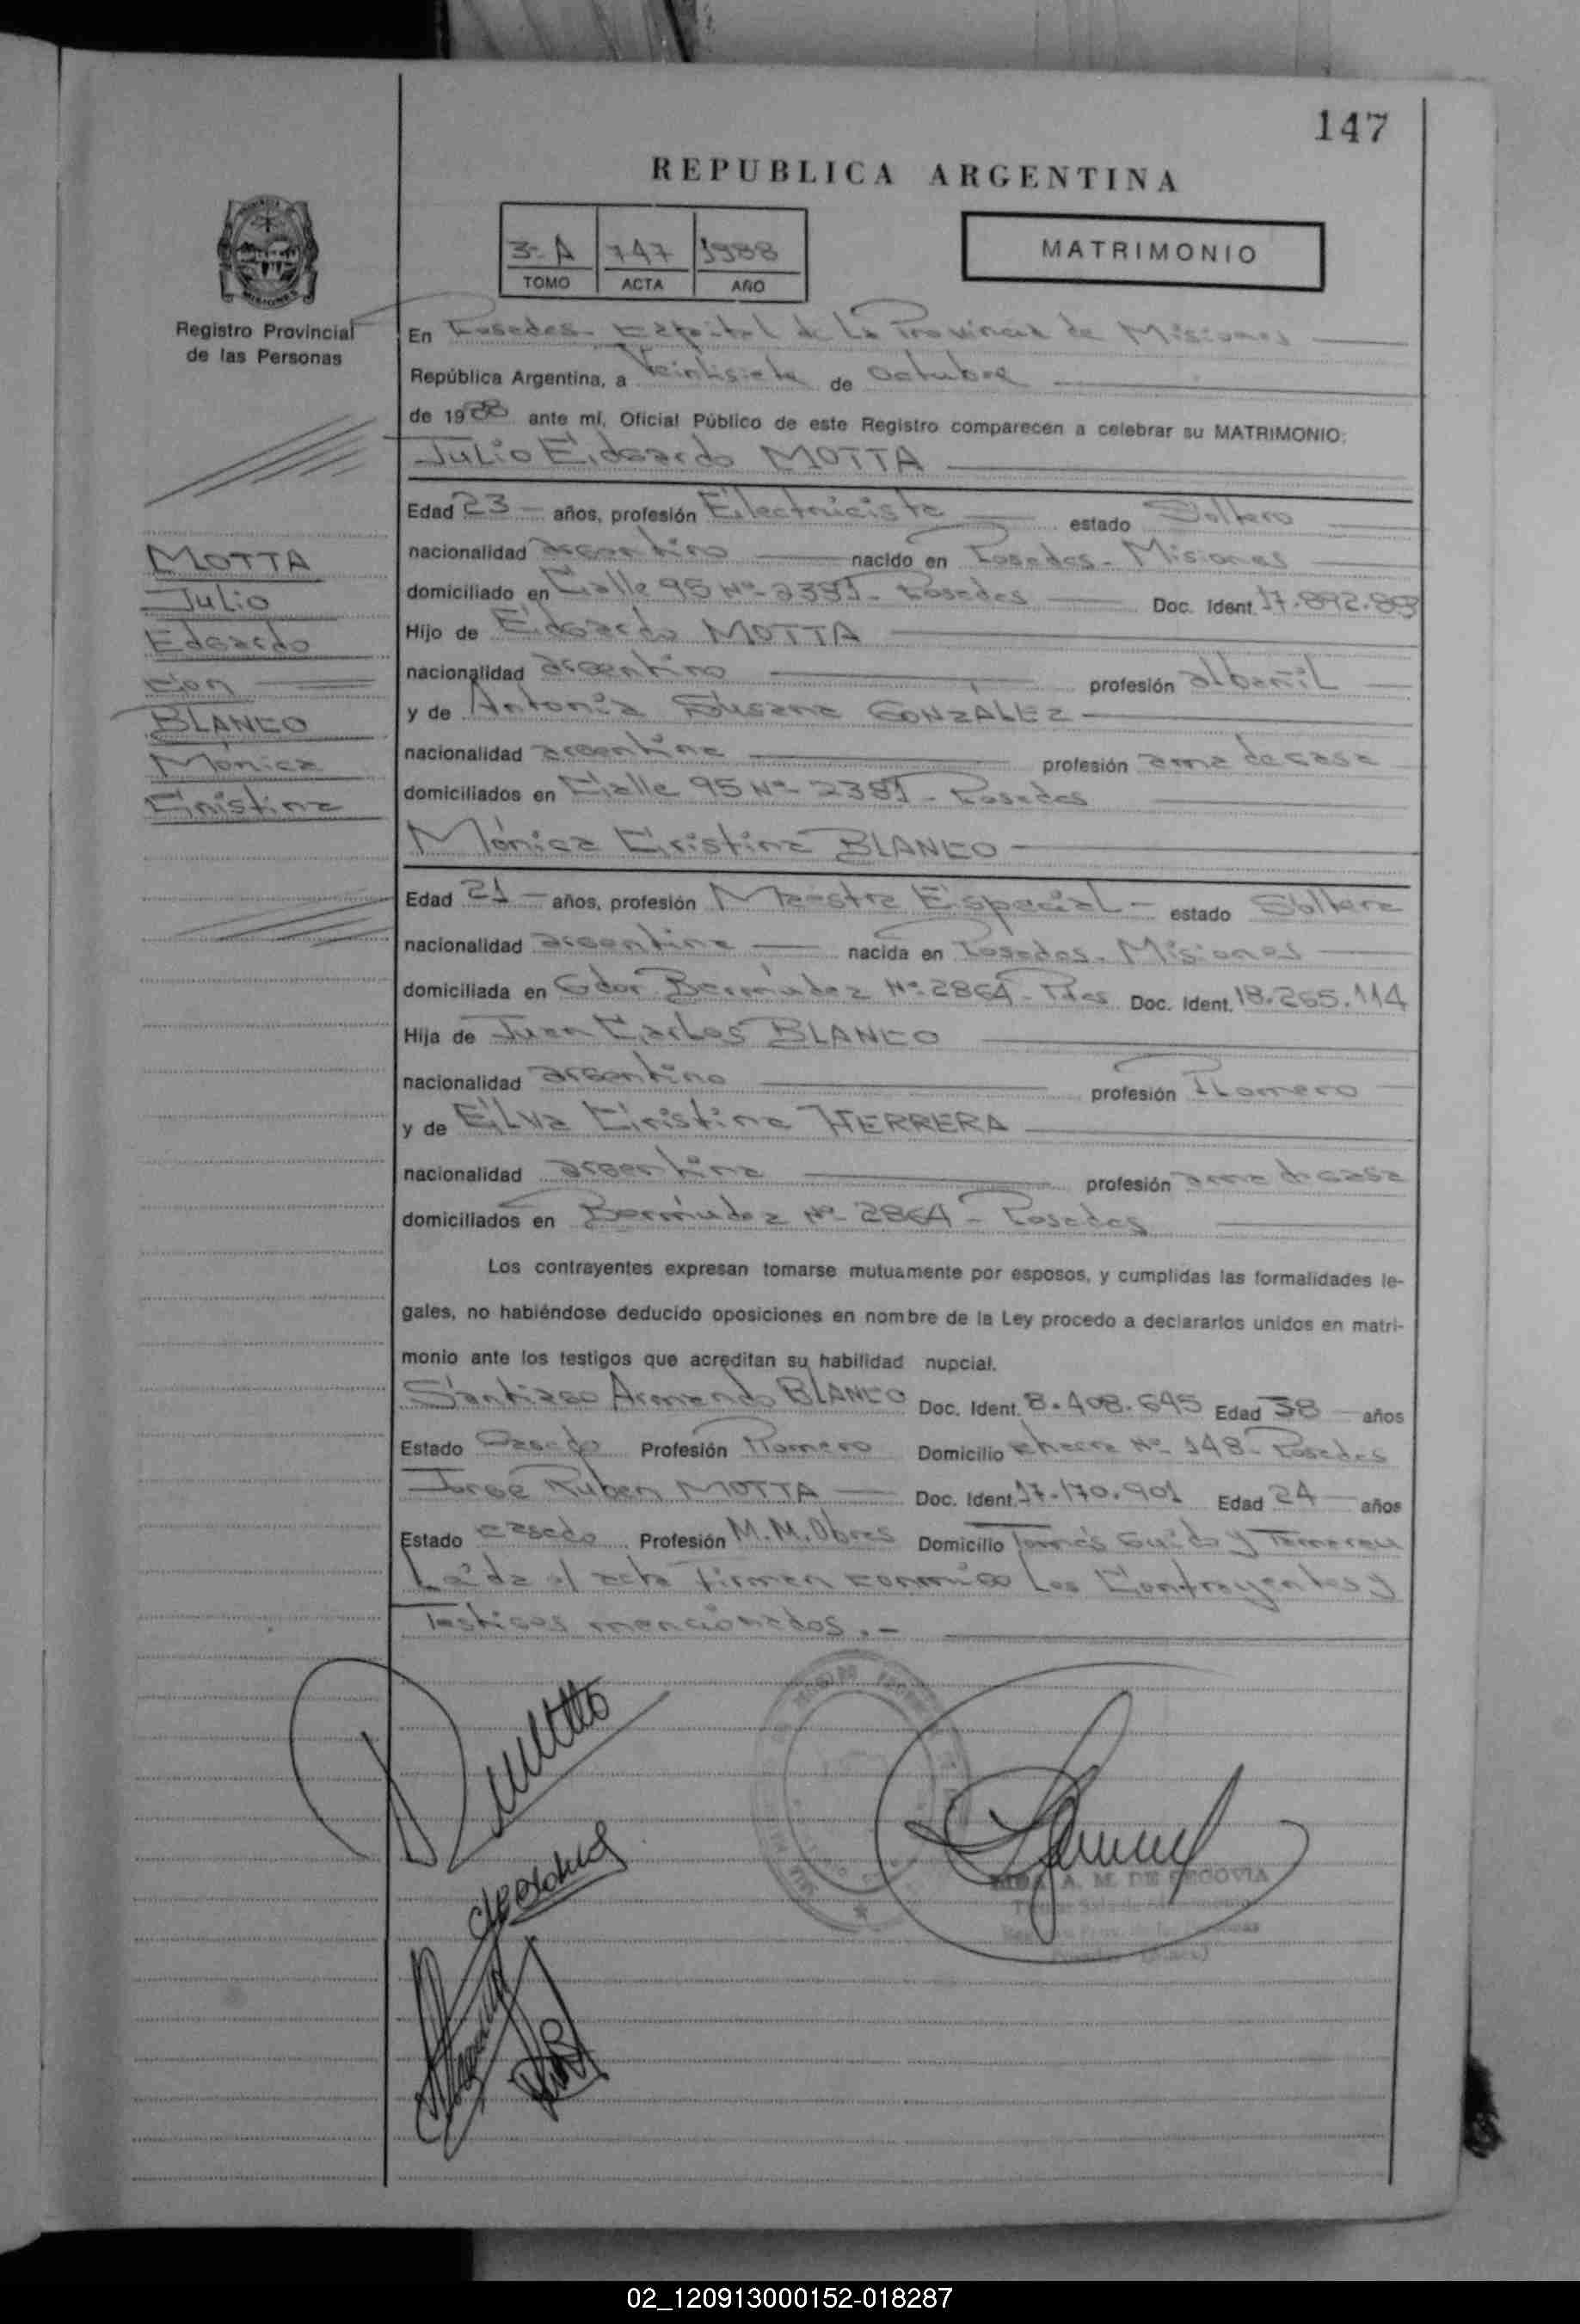 147
REPUBLICA ARGENTINA
3-A 747 1988
TOMO ACTA AÑO
MATRIMONIO
Registro Provincial
de las Personas
En Posadas - Capital de La Provincia de Misiones
República Argentina, a Veintisiete de Octubre
de 1988 ante mí, Oficial Público de este Registro comparecen a celebrar su MATRIMONIO:
Julio Edgardo MOTTA
Edad 23 - años, profesión Electricista estado Soltero
nacionalidad argentino nacido en Posadas - Misiones
domiciliado en Calle 95 Nº 2381 - Posadas Doc. Ident. 17.892.
Hijo de Edgardo MOTTA
nacionalidad argentino profesión albañil
y de Antonia Susana GONZALEZ
nacionalidad argentina profesión ama de casa
domiciliados en Calle 95 Nº 2381 - Posadas
Mónica Cristina BLANCO
Edad 21 - años, profesión Maestra Especial - estado Soltera
nacionalidad argentina nacida en Posadas - Misiones
domiciliada en Gdor Bermúdez Nº 2864 - Pdas Doc. Ident. 18.265.114
Hija de Juan Carlos BLANCO
nacionalidad argentino profesión Plomero
y de Elva Cristina HERRERA
nacionalidad argentina profesión ama de casa
domiciliados en Bermúdez Nº 2864 - Posadas
Los contrayentes expresan tomarse mutuamente por esposos, y cumplidas las formalidades le-
gales, no habiéndose deducido oposiciones en nombre de la Ley procedo a declararlos unidos en matri-
monio ante los testigos que acreditan su habilidad nupcial.
Santiago Armando BLANCO Doc. Ident. 8.408.645 Edad 38 años
Estado Casado Profesión Plomero Domicilio chacra Nº 148 - Posadas
Jorge Ruben MOTTA Doc. Ident. 17.170.901 Edad 24 años
Estado casado Profesión M.M.Obras Domicilio Tomás Guido y
Leída el acta firman conmigo Los Contrayentes y
Testigos mencionados.-
MOTTA
Julio
Edgardo
con
BLANCO
Mónica
Cristina
A. M. DE SEGOVIA
02_120913000152-018287